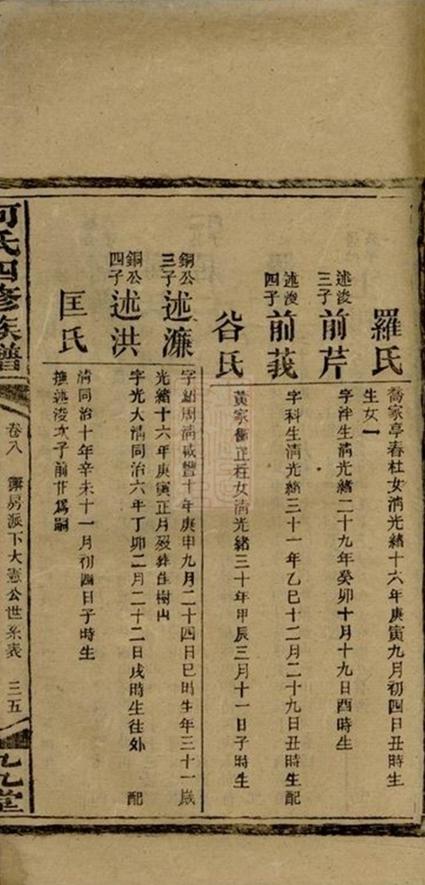 羅氏
喬家亭春杜女淸光緒十六年庚寅九月初四日丑時生
生女一
述浚三子
前芹
字泮生淸光緒二十九年癸卯十月十九日酉時生
述浚四子
前莪
字科生淸光緒三十一年乙巳十二月二十九日丑時生配
谷氏
黃家 正社女淸光緒三十年甲辰三月十一日子時生
銅公三子
述濂
字 周淸咸豐十年庚申九月二十四日巳時生年三十一歲
光緒十六年庚寅正月歿葬 樹山
銅公四子
述洪
字光大淸同治六年丁卯二月二十二日戌時生往外 配
匡氏
淸同治十年辛未十一月初四日子時生
撫述浚次子前 爲嗣
何氏四修族譜
卷八 房派下大憲公世系表 三五
九堂